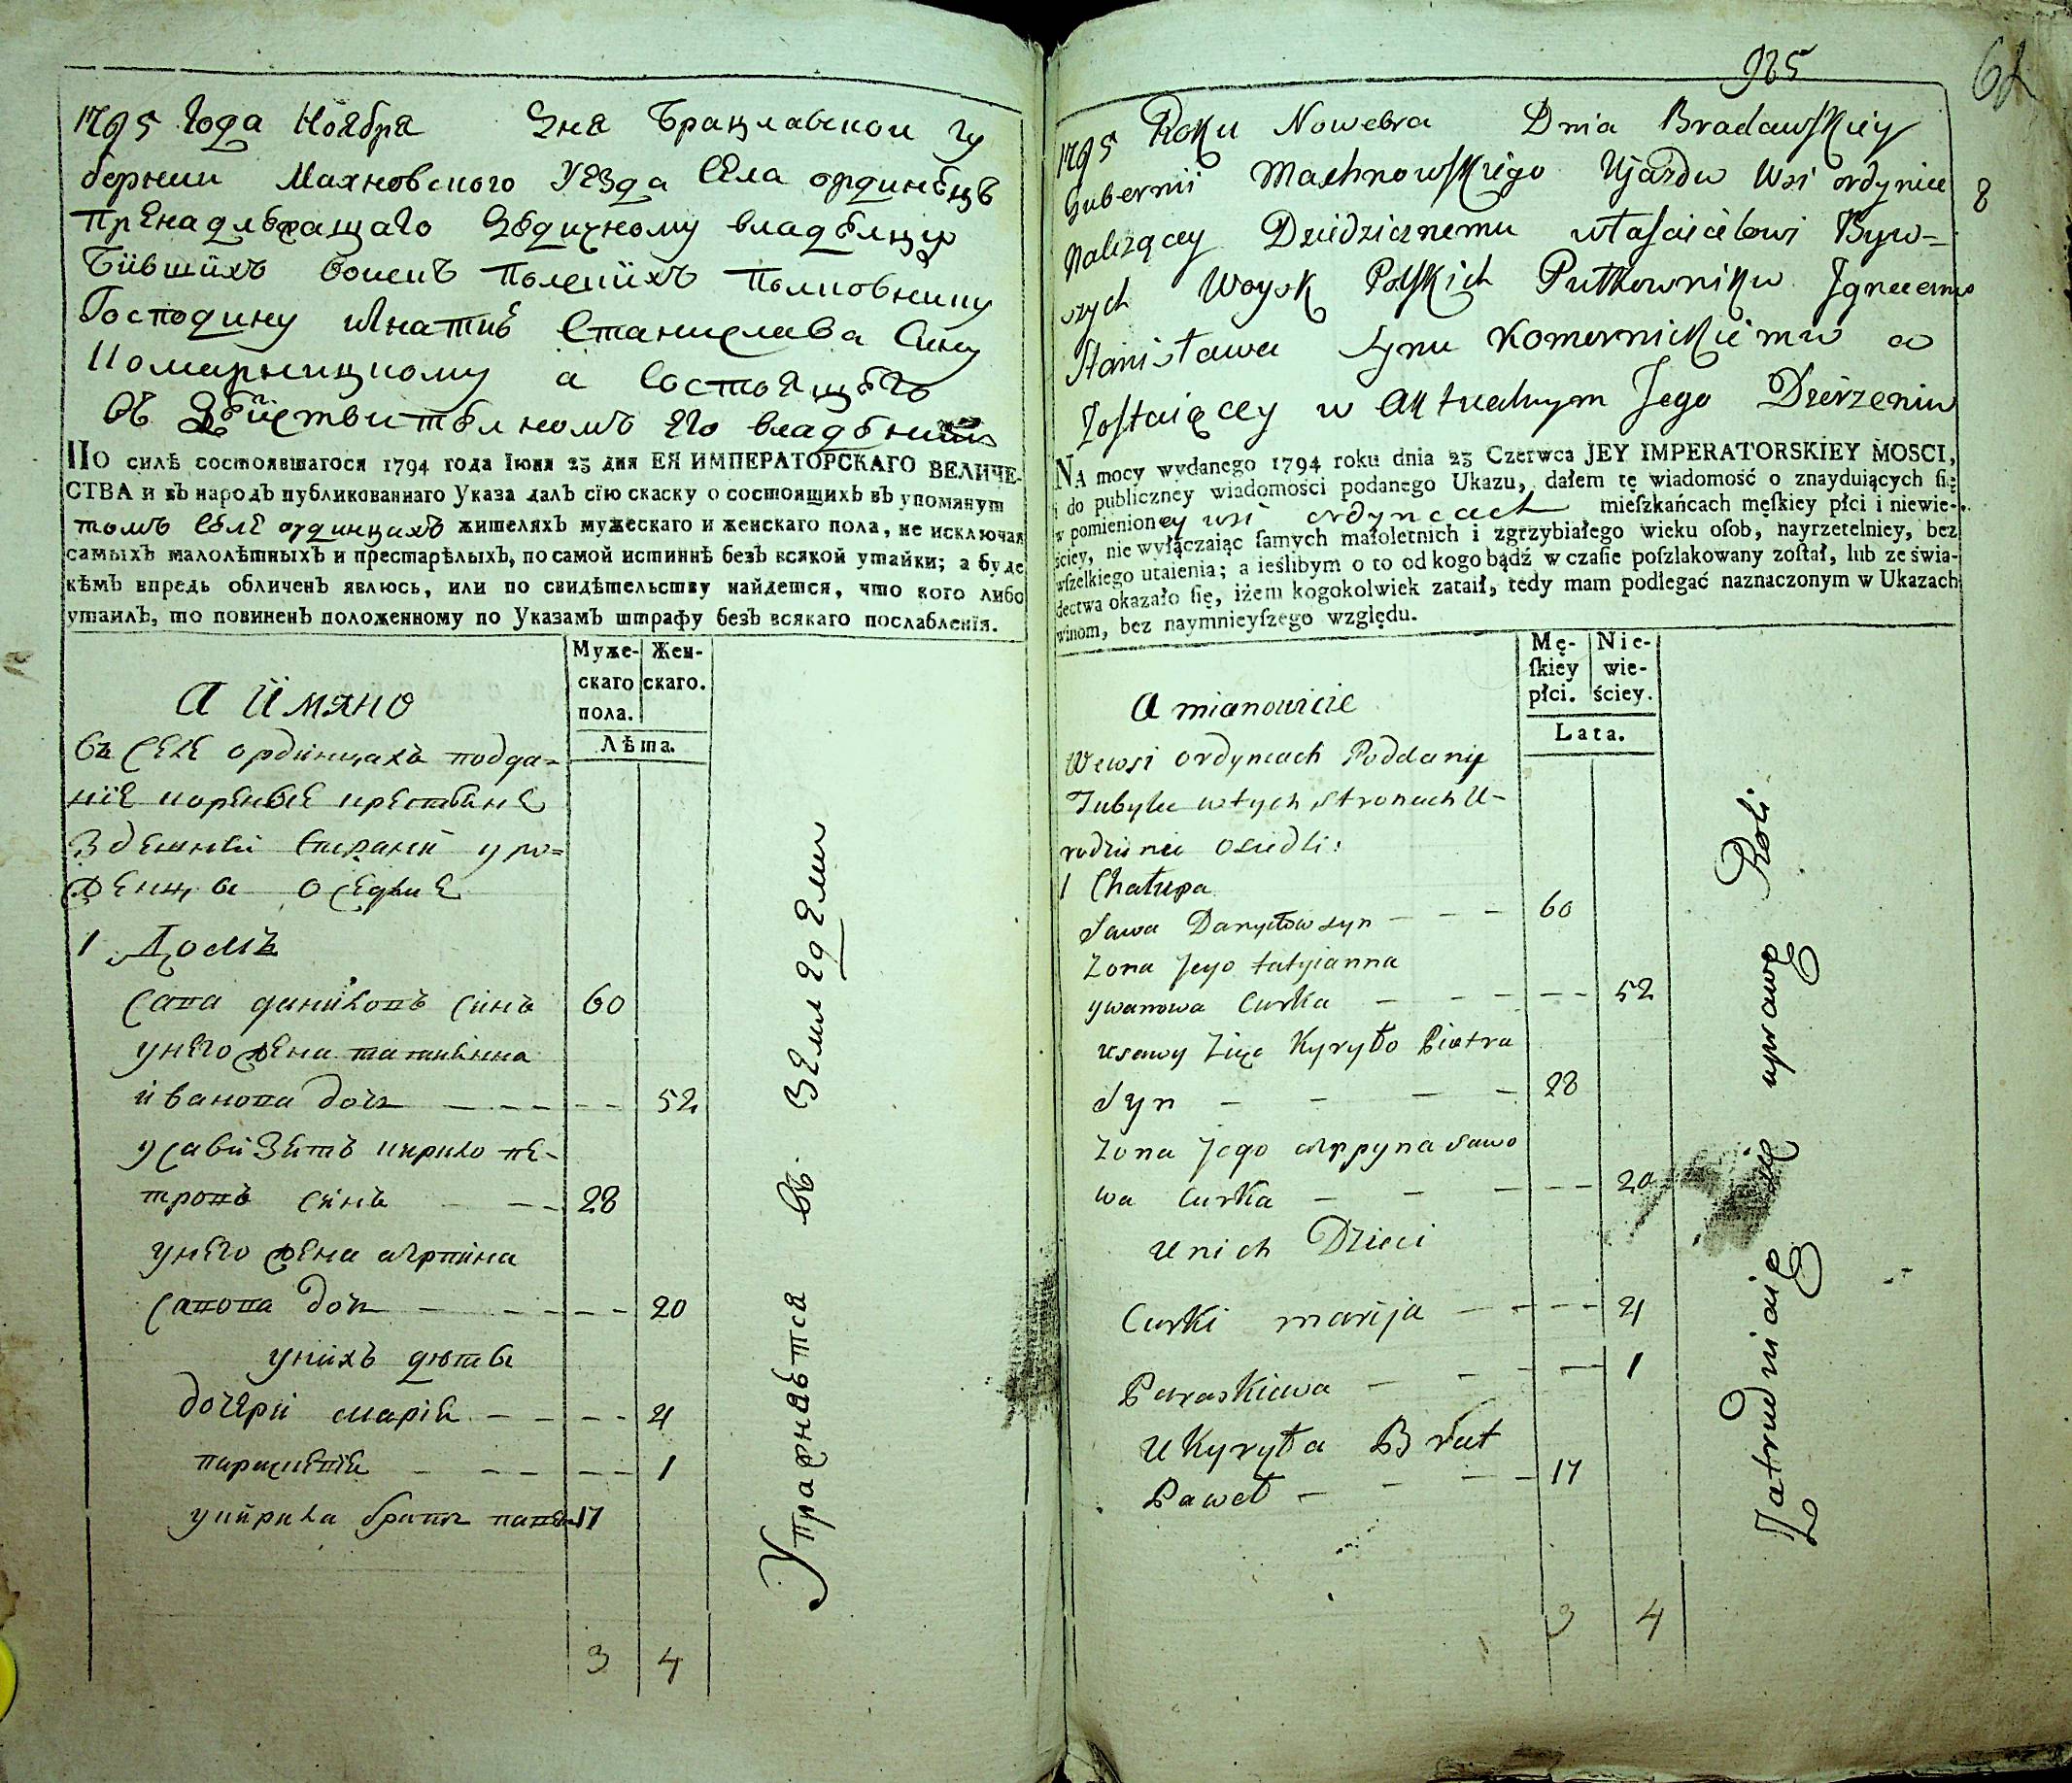 1795 Года Ноября Дня Брацлавской Гу
бернии Махновского Уезда Села ординѣцъ
Принадлѣжащаго Дѣдичному владѣлцу
Бывшихъ воискъ Полскихъ Полковнику
Господину Игнатию Станислава Сину
Комарницкому а Состоящѣго
Въ Дѣйствитѣлномъ Его владѣнии
ПО силѣ состоявшагося 1794 года Іюня 23 дня ЕЯ ИМПЕРАТОРСКАГО ВЕЛИЧЕ-
СТВА и въ народъ публикованнаго Указа далъ сїю скаску о состоящихъ въ упомянут
томъ Селѣ ординцахъ жителяхъ мужескаго и женскаго пола, не исключая
самыхъ малолѣтныхъ и престарѣлыхъ, по самой истиннѣ безъ всякой утайки; а буде
кѣмъ впредь обличенъ явлюсь, или по свидѣтельству найдется, что кого либо
утаилъ, то повиненъ положенному по Указамъ штрафу безъ всякаго послабленія.
Муже-
скаго
пола.
Жен-
скаго.
Лѣта.
А Имяно
въ Селе ординцахъ подда-
ніе
Здешней Страни уро-
женцы оседлие
1 Домъ
Сава Даниловъ Синъ 60
унего жена татиянна
иванова дочь - - - - - 52
усави Зять кирило пе-
тровъ Синъ - - - 28
унего жена агрпина
Савова дочь - - - - - 20
унихъ дети
дочери мария - - - - 4
парасквия - - - - - 1
укирила братъ павелъ 17
3 4
Упражняѣтся въ ЗЕмлЕдЕлии
925
62
8
1795 Roku Nowebra Dnia Braclawskiey
Gubernii Machnowskiego Ujazdu Wsi ordyniec
Nalezącey Dziedzicznemu właścicielowi Byw-
szych Woysk Polskich Pułkowniku Ignacemu
Stanisława Synu Komornickiemu a
Zostaiącey w Aktualnym Jego Dzierzeniu
NA mocy wydanego 1794 roku dnia 23 Czerwca JEY IMPERATORSKIEY MOSCI,
i do publiczney wiadomości podanego Ukazu, dałem tę wiadomość o znayduiących ſię
w pomienioney wsi ordyncach mieſzkańcach męſkiey płci i niewie-
ściey, nie wyłączaiąc ſamych małoletnich i zgrzybiałego wieku oſob, nayrzetelniey, bez
wſzelkiego utaienia; a ieślibym o to od kogo bądź w czaſie poſzlakowany zoſtał, lub ze świa-
dectwa okazało ſię, iżem kogokolwiek zataił, tedy mam podlegać naznaczonym w Ukazach
winom, bez naymnieyſzego względu.
Mę-
ſkiey
płci.
Nie-
wie-
ściey.
Lata.
A mianowicie
Wewsi ordyncach Poddani
Tubylce wtych stronach U-
rodzinei osiedli:
1 Chałupa
Sawa Danyłow syn - - - 60
Zona Jego tatyianna
ywanowa Curka - - - - - 52
usawy Zięc Kyryło Piotra
Syn - - - - 28
Zona Jego Agrypyna Sawo
wa Curka - - - - - 20
unich Dzieci
Curki marija - - - - 4
Paraskiewa - - - - - 1
U Kyryła Brat
Paweł - - - - 17
3 4
Zatrudniaią się uprawą Roli